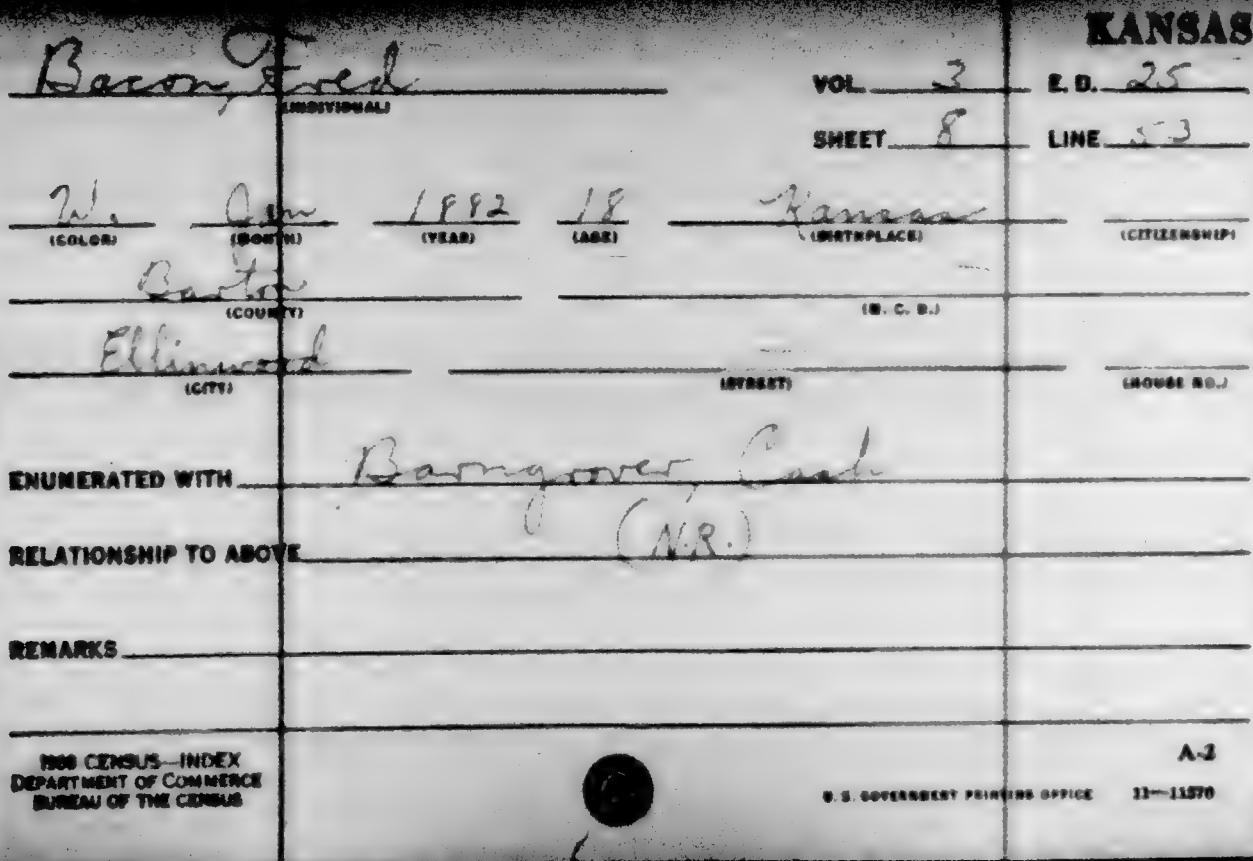 KANSAS
Bacon, Fred
(INDIVIDUAL)
VOL. 3 E. D. 25
SHEET 8 LINE 53
W. Jan 1882 18 Kansas
(COLOR) (MONTH) (YEAR) (AGE) (BIRTHPLACE) (CITIZENSHIP)
Barton
(COUNTY) (M. C. D.)
Ellinwood
(CITY) (STREET) (HOUSE NO.)
ENUMERATED WITH Barngrover, Cash
RELATIONSHIP TO ABOVE (N.R.)
REMARKS
1900 CENSUS—INDEX
DEPARTMENT OF COMMERCE
BUREAU OF THE CENSUS
A-2
U. S. GOVERNMENT PRINTING OFFICE 11—11570